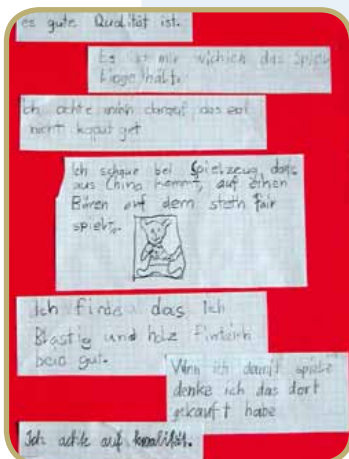 es gute Qualität ist.
Es ist mir wichich das Spielt
lange hält.
Ich achte mich darauf das es
nicht kaput get
Ich schaue bei Spielzeug, dass
aus China kommt, auf einen
Bären auf dem steth fair
spielt.
Ich finde das Ich
Blastig und holz finteich
beid gut.
Wenn ich damit spiele
denke ich das dort
gekauft habe
Ich achte auf kwalität.